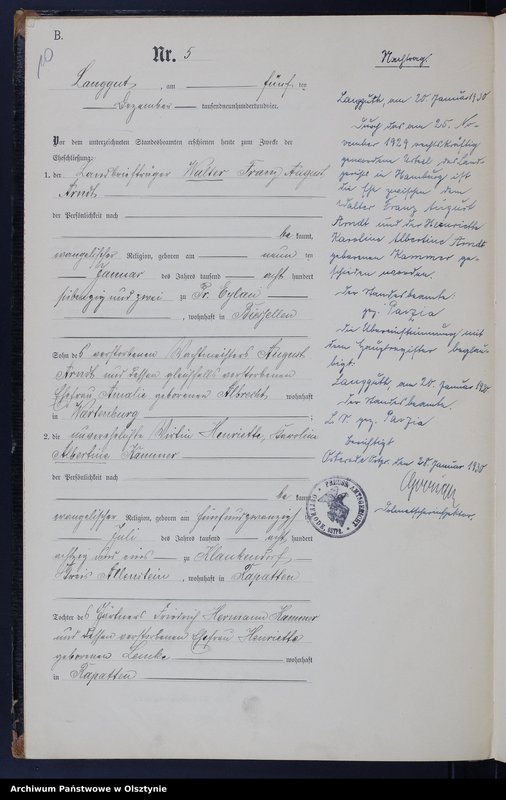 B.
Nr. 5
Langgut, am fünf ten
Dezember tausendneunhundertundvier.
Vor dem unterzeichneten Standesbeamten erschienen heute zum Zwecke der
Eheschließung:
1. der Landbriefträger Walter Franz August
Arndt
der Persönlichkeit nach
be kannt,
evangelischer Religion, geboren am neun ten
Januar des Jahres tausend acht hundert
siebenzig und zwei zu Pr. Eylau
, wohnhaft in Biessellen
Sohn des verstorbenen Wachtmeisters August
Arndt und dessen gleichfalls verstorbenen
Ehefrau Amalie geborenen Albrecht wohnhaft
in Wartenburg ;
2. die unverehelichte Wirtin Henriette Karoline
Albertine Kammer
der Persönlichkeit nach
be kannt,
evangelischer Religion, geboren am fünfundzwanzigsten
Juli des Jahres tausend acht hundert
achtzig und eins zu Klaukendorf
Kreis Allenstein, wohnhaft in Kapatten
Tochter des Gärtners Friedrich Hermann Kammer
und dessen verstorbenen Ehefrau Henriette
geborenen Lemke wohnhaft
in Kapatten
Nachtrag.
Langguth, am 20. Januar 1930
Durch das am 25. No-
vember 1929 rechtskräftig
gewordene Urteil des Land-
gerichts in Hamburg ist
die Ehe zwischen dem
Walter Franz August
Arndt und der Henriette
Karoline Albertine Arndt
geborenen Kammer ge-
schieden worden.
Der Standesbeamte:
gez.
Die Übereinstimmung mit
dem Hauptregister beglau-
bigt.
Langguth, am 20. Januar 1930
Der Standesbeamte.
L. S. gez.
Berichtigt
Osterode Ostpr. den Januar 1930
Archiwum Państwowe w Olsztynie